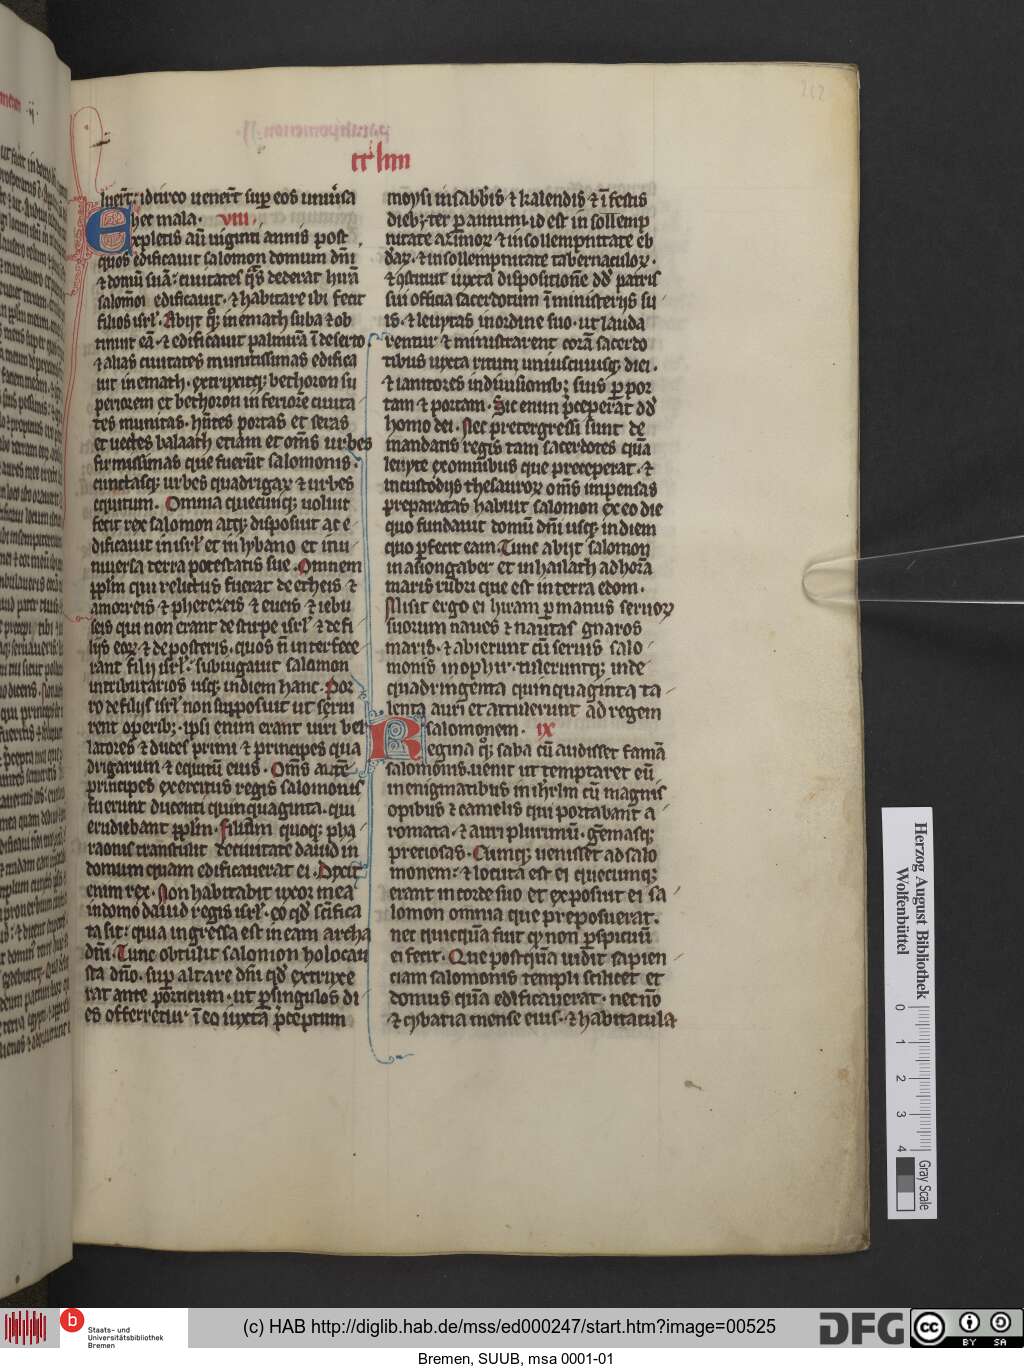 luer̄t: idcirco uener̄t sup̱ eos uniu̾sa
hec mala. VIII.
Expletis aū uiginti annis post
quos edificauit salomon domum dn̄i
⁊ domū suā: ciuitates q̄s dederat hirā
salomōi edificauit. ⁊ habitare ibi fecit
filios isrl̓. Abijt qꝫ in emath suba ⁊ ob
tinuit eā. ⁊ edificauit palmirā ī deserto
⁊ alias ciuitates munitissimas edifica
uit in emath. extruxitqꝫ bethoron su
periorem et bethoron inferiorē ciuita
tes munitas. hn̄tes portas et seras
et uectes balaath etiam et om̄s urbes
firmissimas que fuer̄ut salomonis.
cunctasqꝫ urbes quadrigaꝝ ⁊ urbes
equitum. Omnia quecunqꝫ uoluit
fecit rex salomon atqꝫ disposuit ac e
dificauit in isrl̓ et in lybano et in u
niuersa terra potestatis sue. Omnem
pp̱lm qui relictus fuerat de etheis ⁊
amorreis ⁊ pherezeis ⁊ eueis ⁊ iebu
seis qui non erant de stirpe isrl̓ ⁊ de fi
lijs eoꝝ ⁊ de posteris. quos n̄ interfece
rant filij isrl̓. subiugauit salomon
in tributarios usqꝫ in diem hanc. Por
ro de filijs isrl̓ non supposuit ut serui
rent operibꝫ. ipsi enim erant uiri bel
latores ⁊ duces primi ⁊ principes qua
drigarum ⁊ equitū eius. Om̄s autē
principes exercitus regis salomonis
fuerunt ducenti quinquaginta. qui
erudiebant pp̱lm. filiam quoqꝫ pha
raonis transtulit de ciuitate dauid in
domum quam edificauerat ei. Dixit
enim rex. Non habitabit uxor mea
in domo dauid regis isrl̓. eo qd̓ sc̄ifica
ta sit: quia ingressa est in eam archa
dn̄i. Tunc obtulit salomon holocau
sta dn̄o. sup̱ altare dn̄i qd̓ extruxe
rat ante p̱orticum. ut p̱ singulos di
es offerretur ī eo iuxta p̄ceptum
moysi in sabbi̓s ⁊ kalendis ⁊ ī festis
diebꝫ. ter p̱ annum. id est in sollemp
nitate azimoꝝ ⁊ in sollempnitate eb
daꝝ. ⁊ in sollempnitate tabernaculoꝝ.
⁊ ꝯstituit iuxta dispositionē dd̓ patris
sui officia sacerdotum ī ministerijs su
is. ⁊ leuytas in ordine suo. ut lauda
rentur ⁊ ministrarent corā sacerdo
tibus iuxta ritum uniuscuiusqꝫ diei.
⁊ ianitores in diuisionibꝫ suis p̱ por
tam ⁊ portam. Sic enim p̄ceperat dd̓
homo dei. Nec pretergressi sunt de
mandatis regis tam sacerdotes quā
leuyte ex omnibus que preceperat. ⁊
in custodijs thesauroꝝ om̄s impensas
preparatas habuit salomon ex eo die
quo fundauit domū dn̄i usqꝫ in diem
quo p̱fecit eam. Tunc abijt salomon
in asiongaber et in hailath ad horā
maris rubri que est in terra edom.
Misit ergo ei hiram p̱ manus seruoꝝ
suorum naues ⁊ nautas gnaros
maris. ⁊ abierunt cū seruis salo
monis in ophir. tuleruntqꝫ inde
quadringenta quinquaginta ta
lenta auri et attulerunt ad regem
salomonem. IX
Regina qꝫ saba cū audisset famā
salomonis. uenit ut temptaret eū
in enigmatibus in ihr̄lm cū magnis
opibus ⁊ camelis qui portabant a
romata. ⁊ auri plurimū. gemasqꝫ
preciosas. Cumqꝫ uenisset ad salo
monem: ⁊ locuta est ei quecumqꝫ
erant in corde suo et exposuit ei sa
lomon omnia que preposuerat.
nec quicquā fuit qd̓ non p̱spicuū
ei fecit. Que postquā uidit sapien
ciam salomonis templi scilicet et
domus quā edificauerat. nec nō
⁊ cybaria mense eius. ⁊ habitacula
Herzog August Bibliothek
Wolfenbüttel
0 1 2 3 4
Gray Scale
b
Staats- und
Universitätsbibliothek
Bremen
(c) HAB http://diglib.hab.de/mss/ed000247/start.htm?image=00525
DFG
cc
BY SA
Bremen, SUUB, msa 0001-01